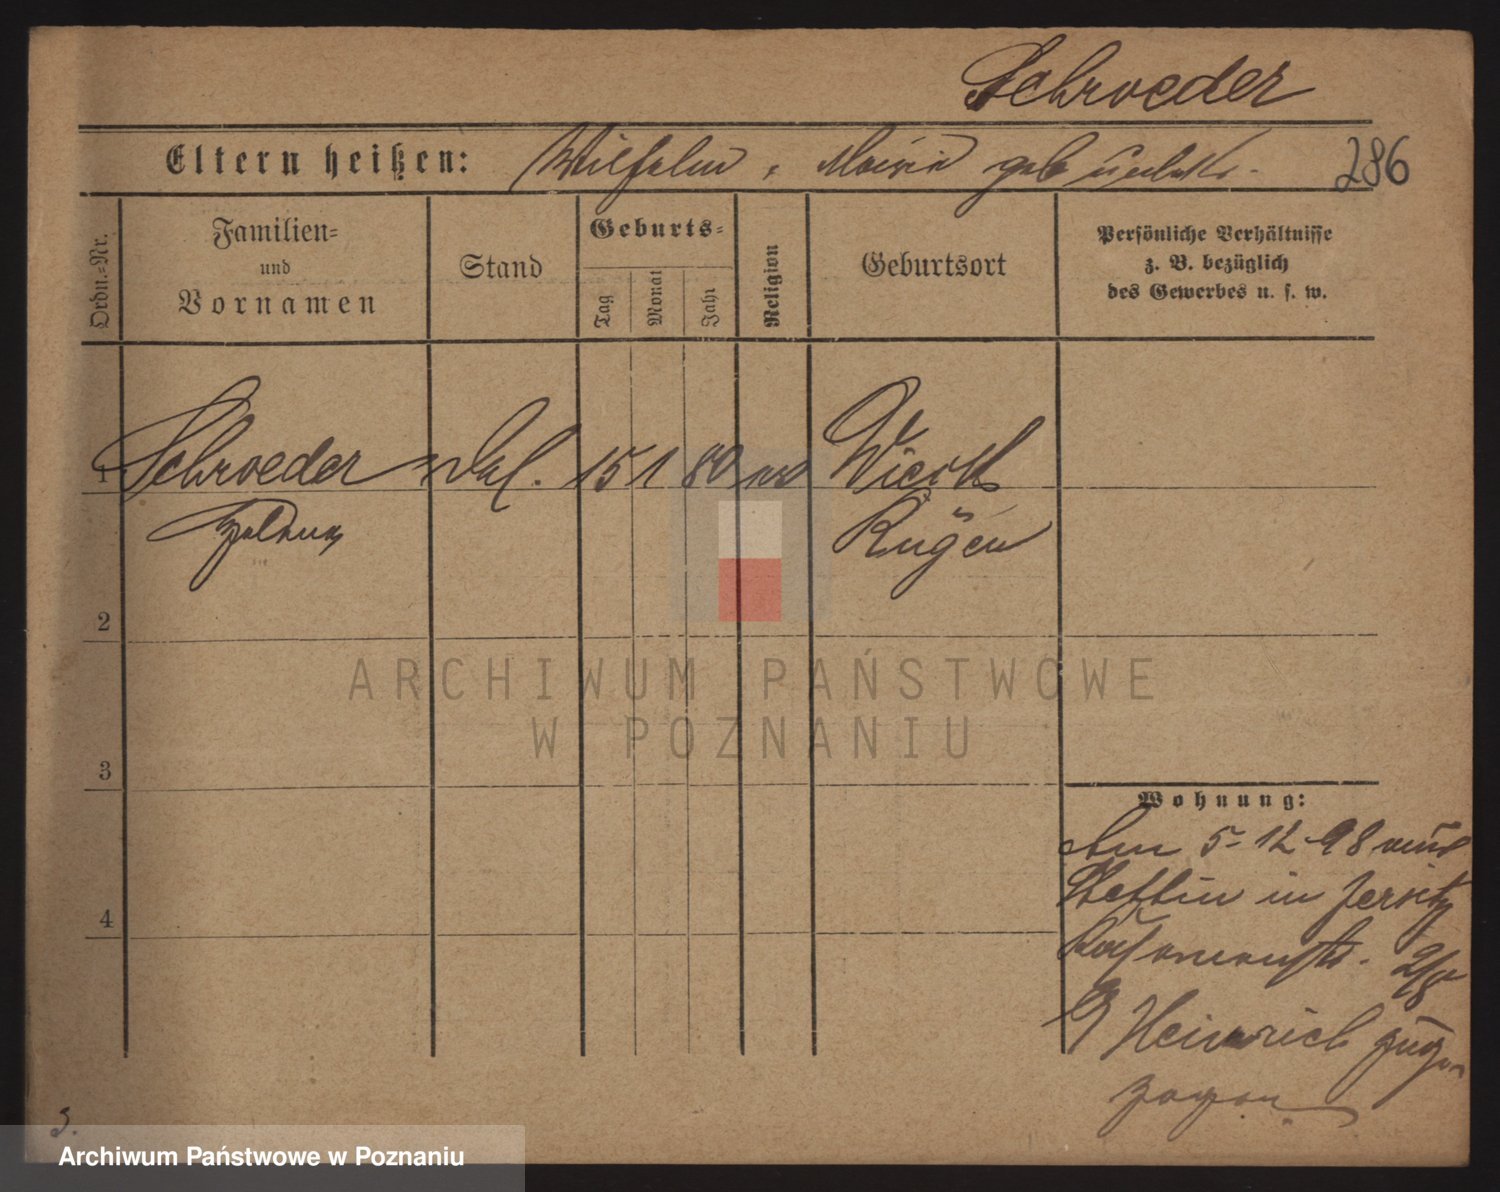 Schroeder
Eltern heißen: Wilhelm, Maria geb
286
Ordn.-Nr.
Familien- und Vornamen
Stand
Geburts-
Tag
Monat
Jahr
Religion
Geburtsort
Persönliche Verhältnisse
z. B. bezüglich
des Gewerbes u. s. w.
1
Schroeder
15 1 80
Rügen
2
3
4
ARCHIWUM PAŃSTWOWE
W POZNANIU
Wohnung:
Am 5-12-98 aus
Stettin in Jersitz
2/8
Heinrich zuge-
zogen
3.
Archiwum Państwowe w Poznaniu